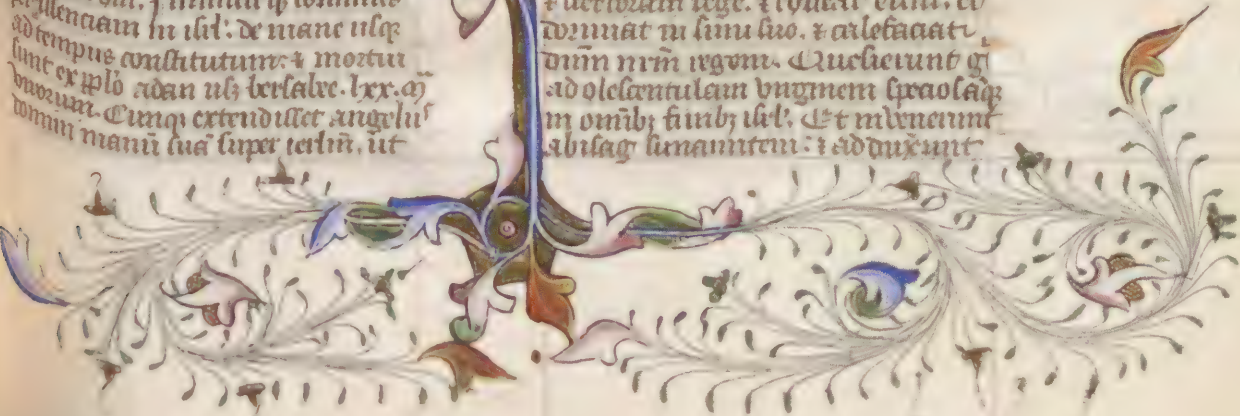 pestilenciam in isrł: de mane usq̢
ad tempus constitutum: ⁊ mortui
sunt ex pp̄lo adan usq̢ bersabee. lxx. m̄
virorum. Cunq̢ extendisset angelus
domini manū suā super ierlm̄, ut
dormiat in sinu suo. ⁊ calefaciat
dnm̄ nrm̄ regem. Quesierunt g̊
adolescentulam virginem speciosā
in omīb; finib; isrł: Et invenerunt
abisag sunamitem: ⁊ adduxerunt